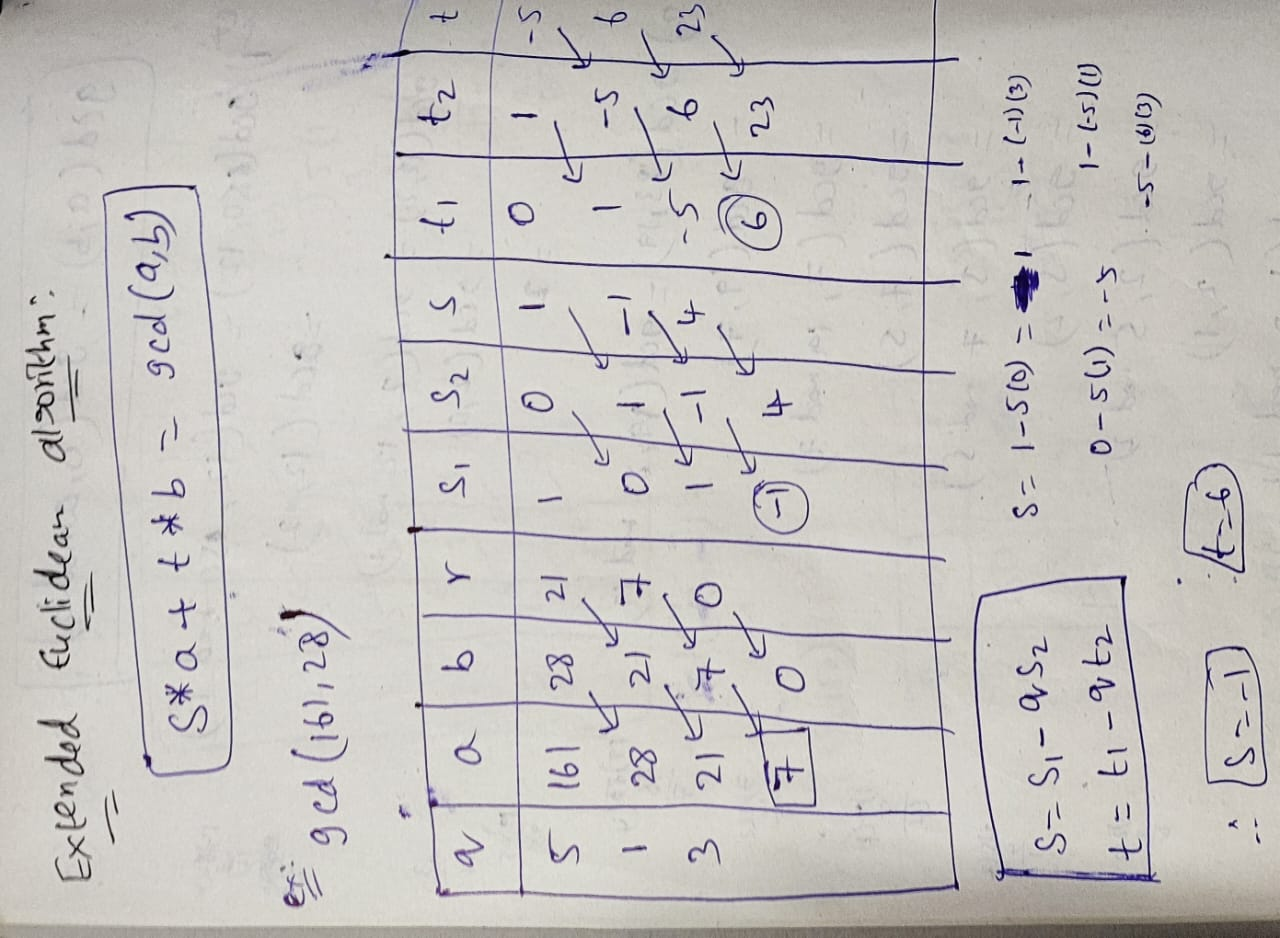 Extended Euclidean algorithm:
S*a + t*b = gcd(a,b)
ex: gcd(161,28)
q a b r S1 S2 S t1 t2 t
5 161 28 21 1 0 1 0 1 -5
1 28 21 7 0 1 -1 1 -5 6
3 21 7 0 1 -1 4 -5 6 23
7 0 -1 4 6 23
S = S1 - qS2
t = t1 - qt2
S = 1-5(0) = 1
1-(-1)(3)
0-5(1) = -5
1-(-5)(1)
-5-(6)(3)
∴ S=-1 t=6